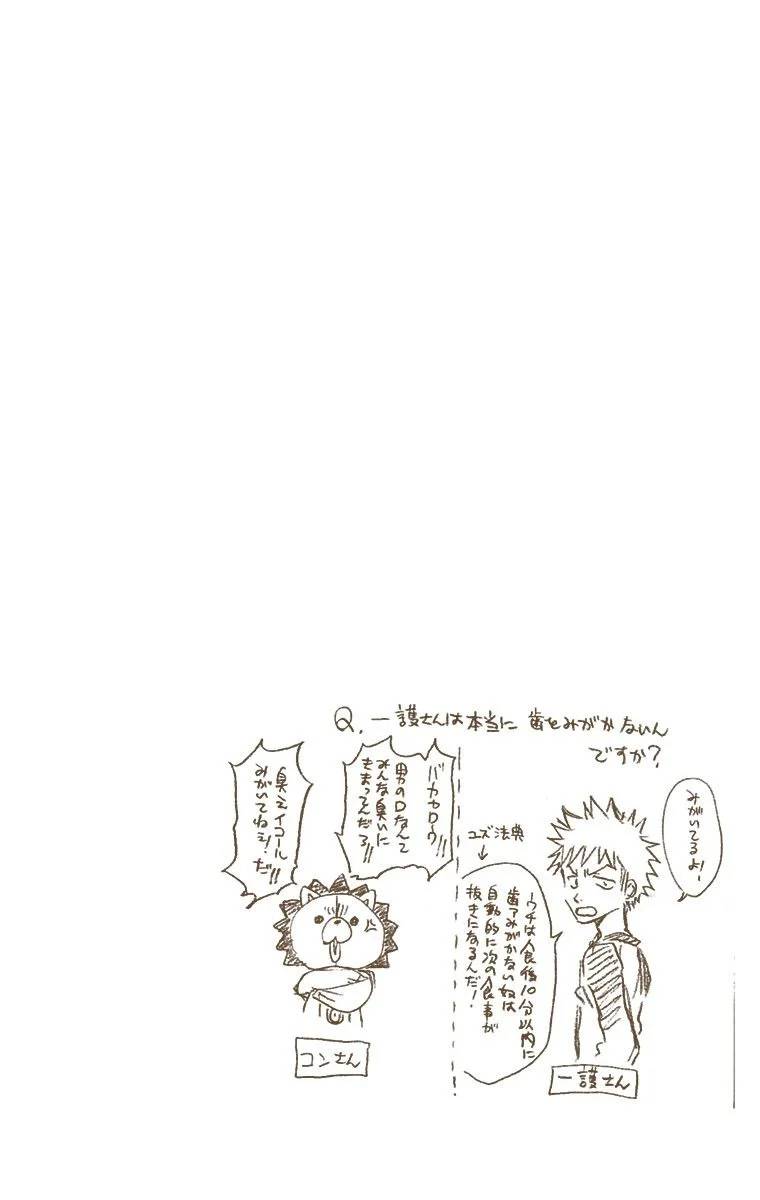 Q. 一護さんは本当に 歯をみがかないん
ですか?
みがいてるよ!
ユズ法典
ウチは食後10分以内に
歯ァみがかない奴は
自動的に次の食事が
抜きになるんだ!
一護さん
バカヤロウ!!
男の口なんて
みんな臭いに
きまってんだろ!!
臭えイコール
みがいてねえ!だ!!
コンさん